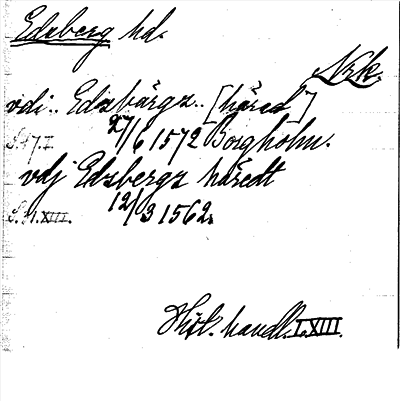 Edsberg hd.
Nrk.
vdi.. Edzbärgz.. [häred]
27/6 1572 Borgholm.
S. 17. I.
vdj Edzbergz häredt
12/3 1562.
S. 21. XIII.
Hist. handl. I. XIII.